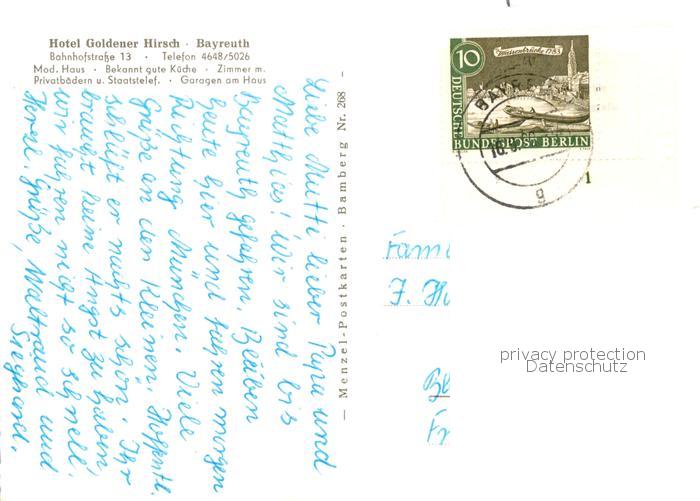 Hotel Goldener Hirsch · Bayreuth
Bahnhofstraße 13 · Telefon 4648/5026
Mod. Haus · Bekannt gute Küche · Zimmer m.
Privatbädern u. Staatstelef. · Garagen am Haus
Liebe Mutti lieber Papa und
Matthias! Wir sind bis
Bayreuth gefahren. Bleiben
heute hier und fahren morgen
Richtung München. Viele
Grüße an den Kleinen. Hoffentl.
schläft er nachts schön. Ihr
braucht keine Angst zu haben,
wir fahren nicht so schnell.
Herzl. Grüße, Waltraud und
Sieghard.
— Menzel-Postkarten · Bamberg Nr. 268 —
10
DEUTSCHE
BUNDESPOST BERLIN
1783
g
1
Fami
J. H
privacy protection
Datenschutz